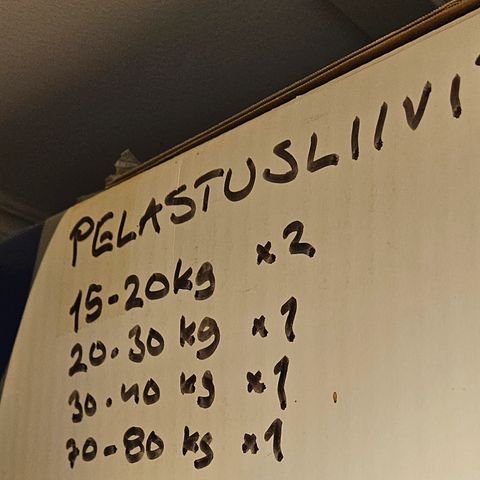 PELASTUSLIIVI
15-20kg x2
20-30 kg x1
30-40 kg x1
70-80 kg x1